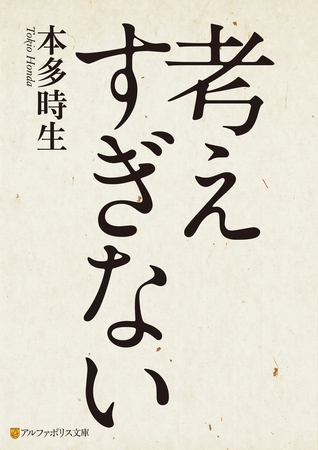 考え
すぎない
本多時生
Tokio Honda
アルファポリス文庫